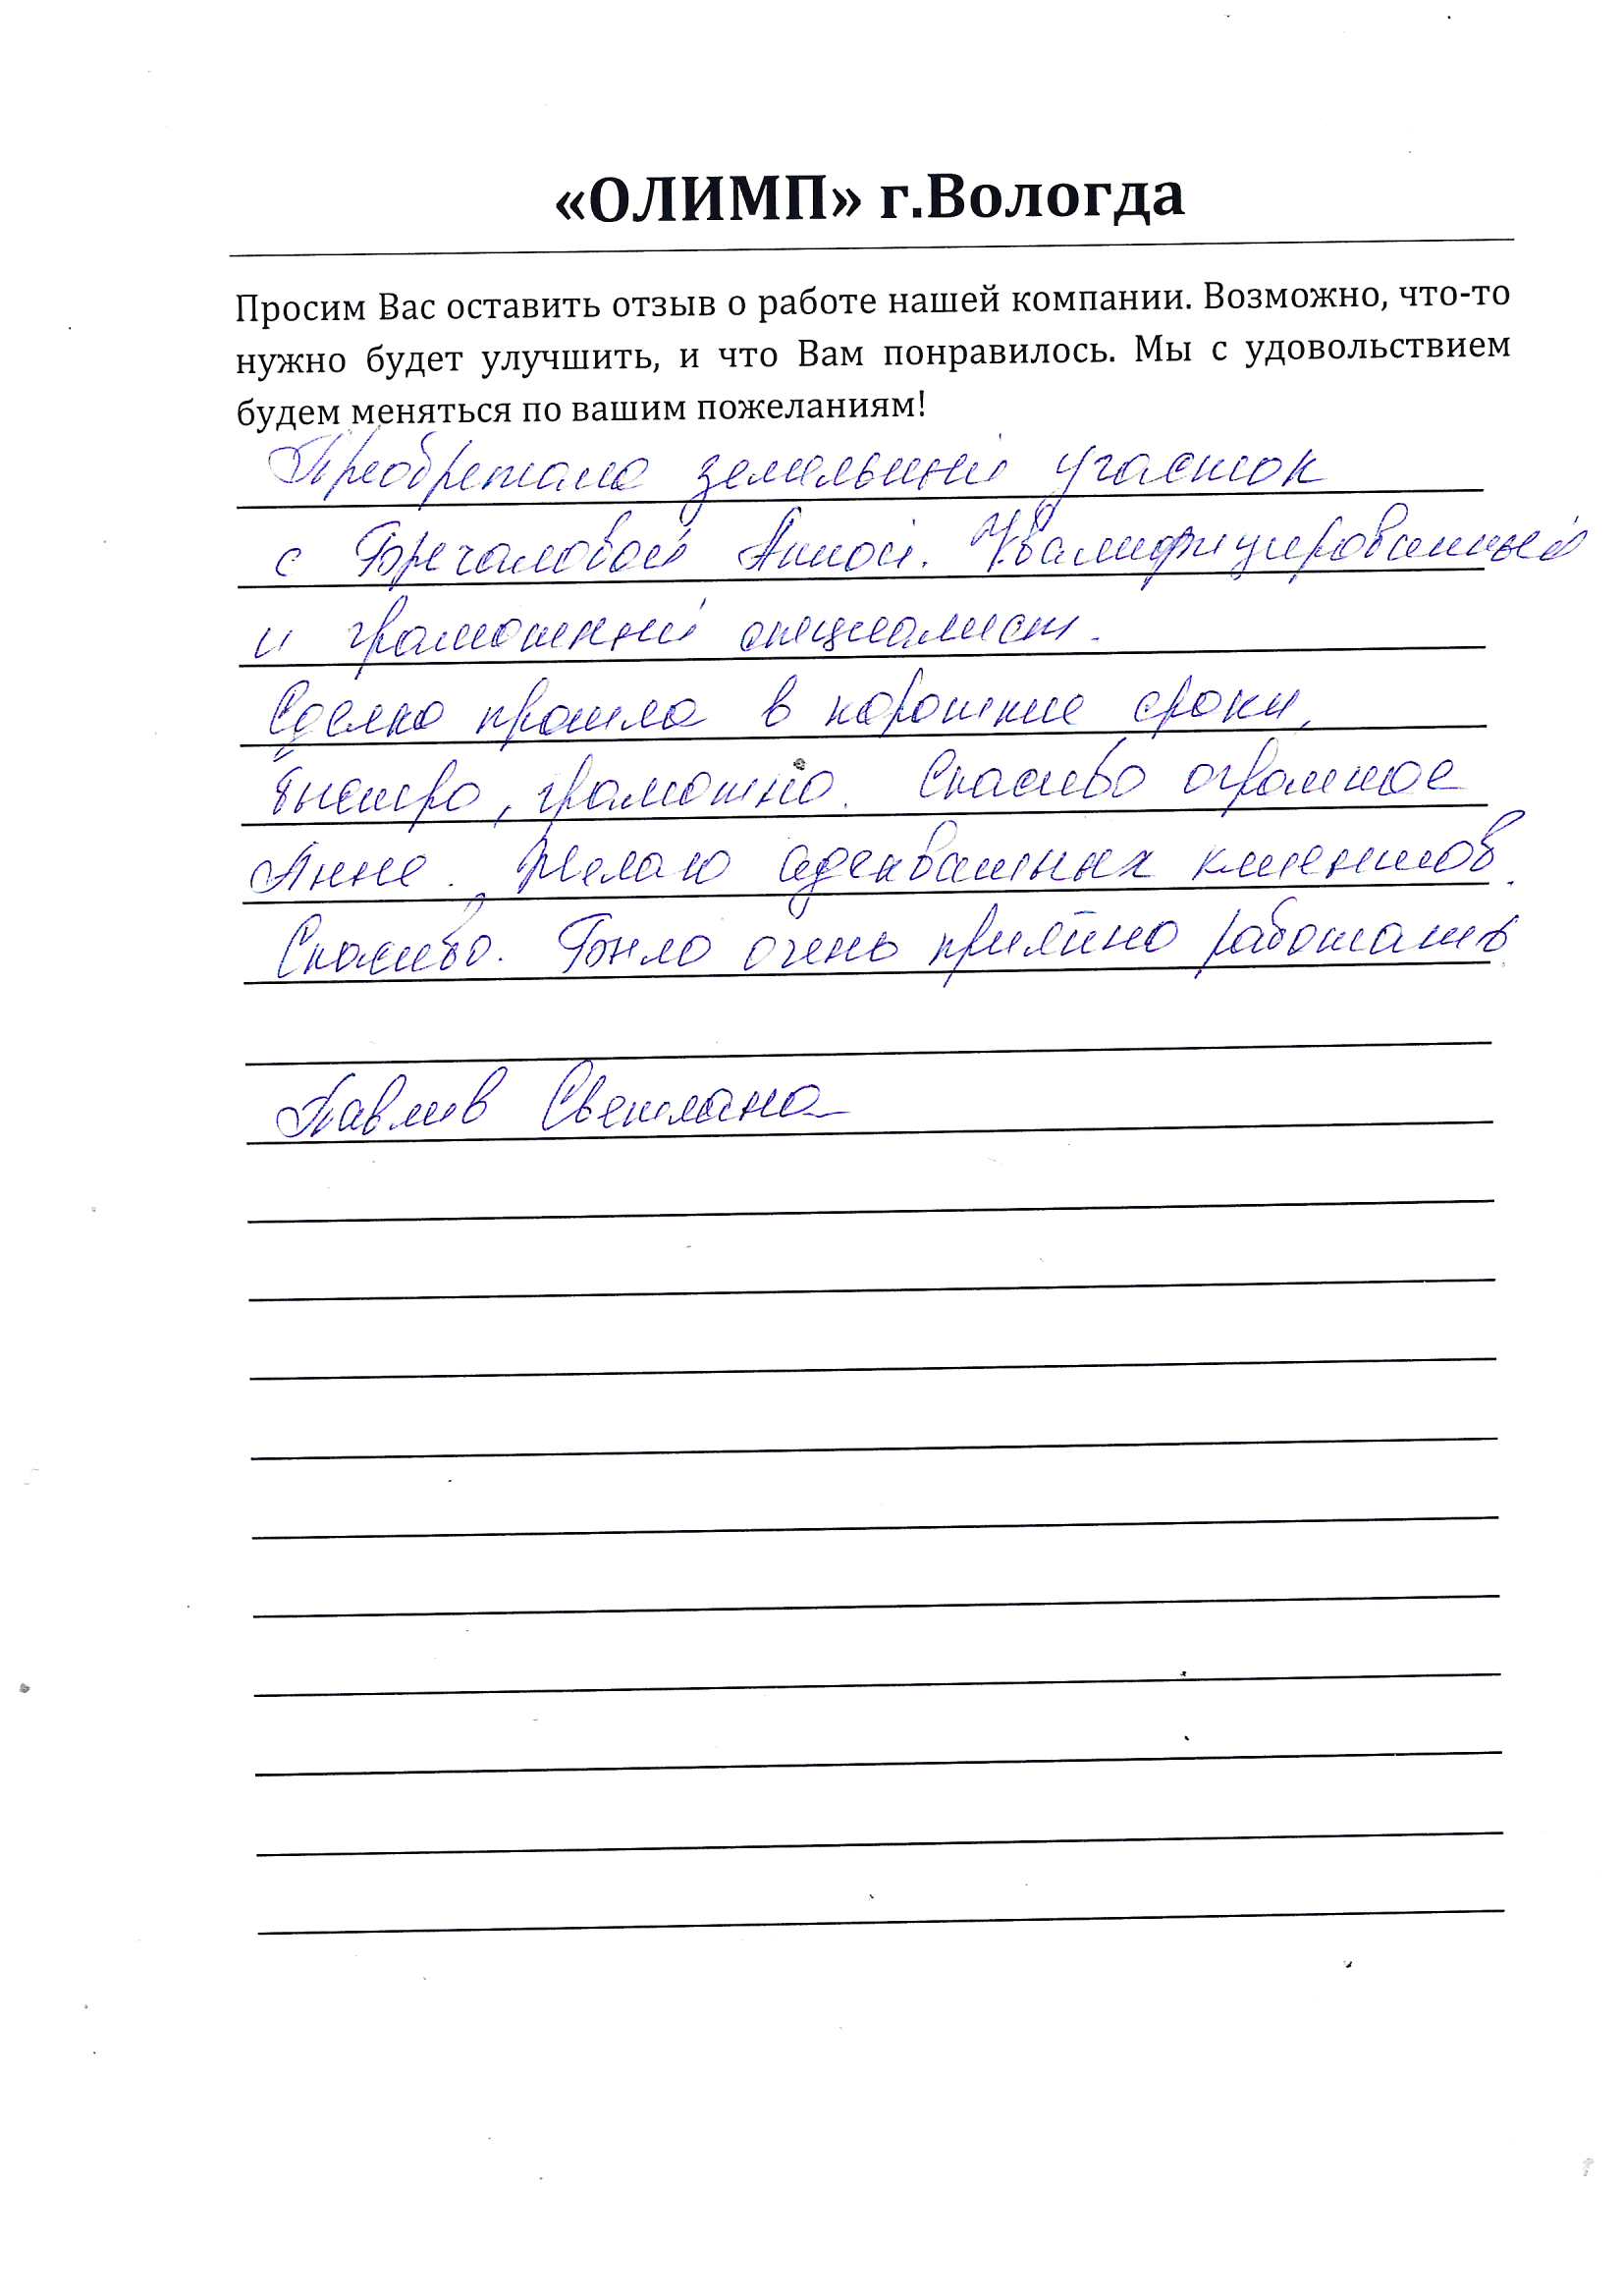 «ОЛИМП» г.Вологда
Просим Вас оставить отзыв о работе нашей компании. Возможно, что-то
нужно будет улучшить, и что Вам понравилось. Мы с удовольствием
будем меняться по вашим пожеланиям!
Преобретала земельный участок
с Бречаловой Анной. Квалифицированный
и грамотный специалист.
Сделка прошла в короткие сроки,
быстро, грамотно. Спасибо огромное
Анне. Желаю адекватных клиентов.
Спасибо. Было очень приятно работать.
Павлив Светлана